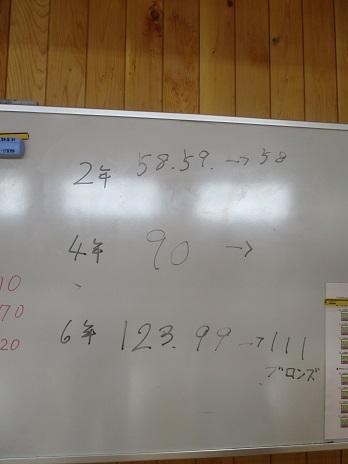 2年 58.59. → 58
4年 90 →
6年 123.99 → 111
ブロンズ
10
70
20